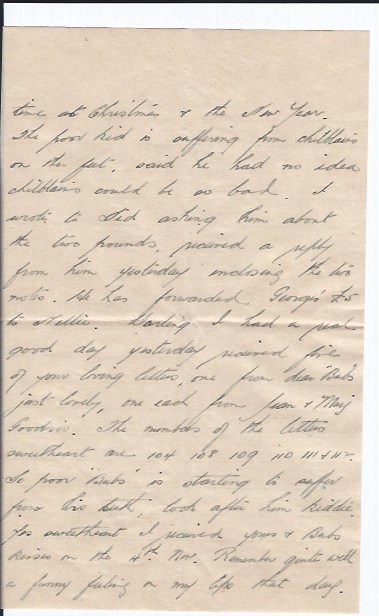 time at Christmas & the New Year.
The poor kid is suffering from chilblains
on the feet, said he had no idea
chilblains could be so bad. I
wrote to Sid asking him about
the two pounds, received a reply
from him yesterday enclosing the two
notes. He has forwarded George's £5
to Nellie. Darling I had a real
good day yesterday received five
of your loving letters, one from dear "Bubs"
just lovely, one each from Jean & Marj
The numbers of the letters
sweetheart are 104 108 109 110 111 & 112.
So poor "Bubs" is starting to suffer
from his teeth, look after him Kiddie.
Yes sweetheart I received yours & Bubs
kisses on the 4th Nov. Remember quite well
a funny feeling on my lips that day.